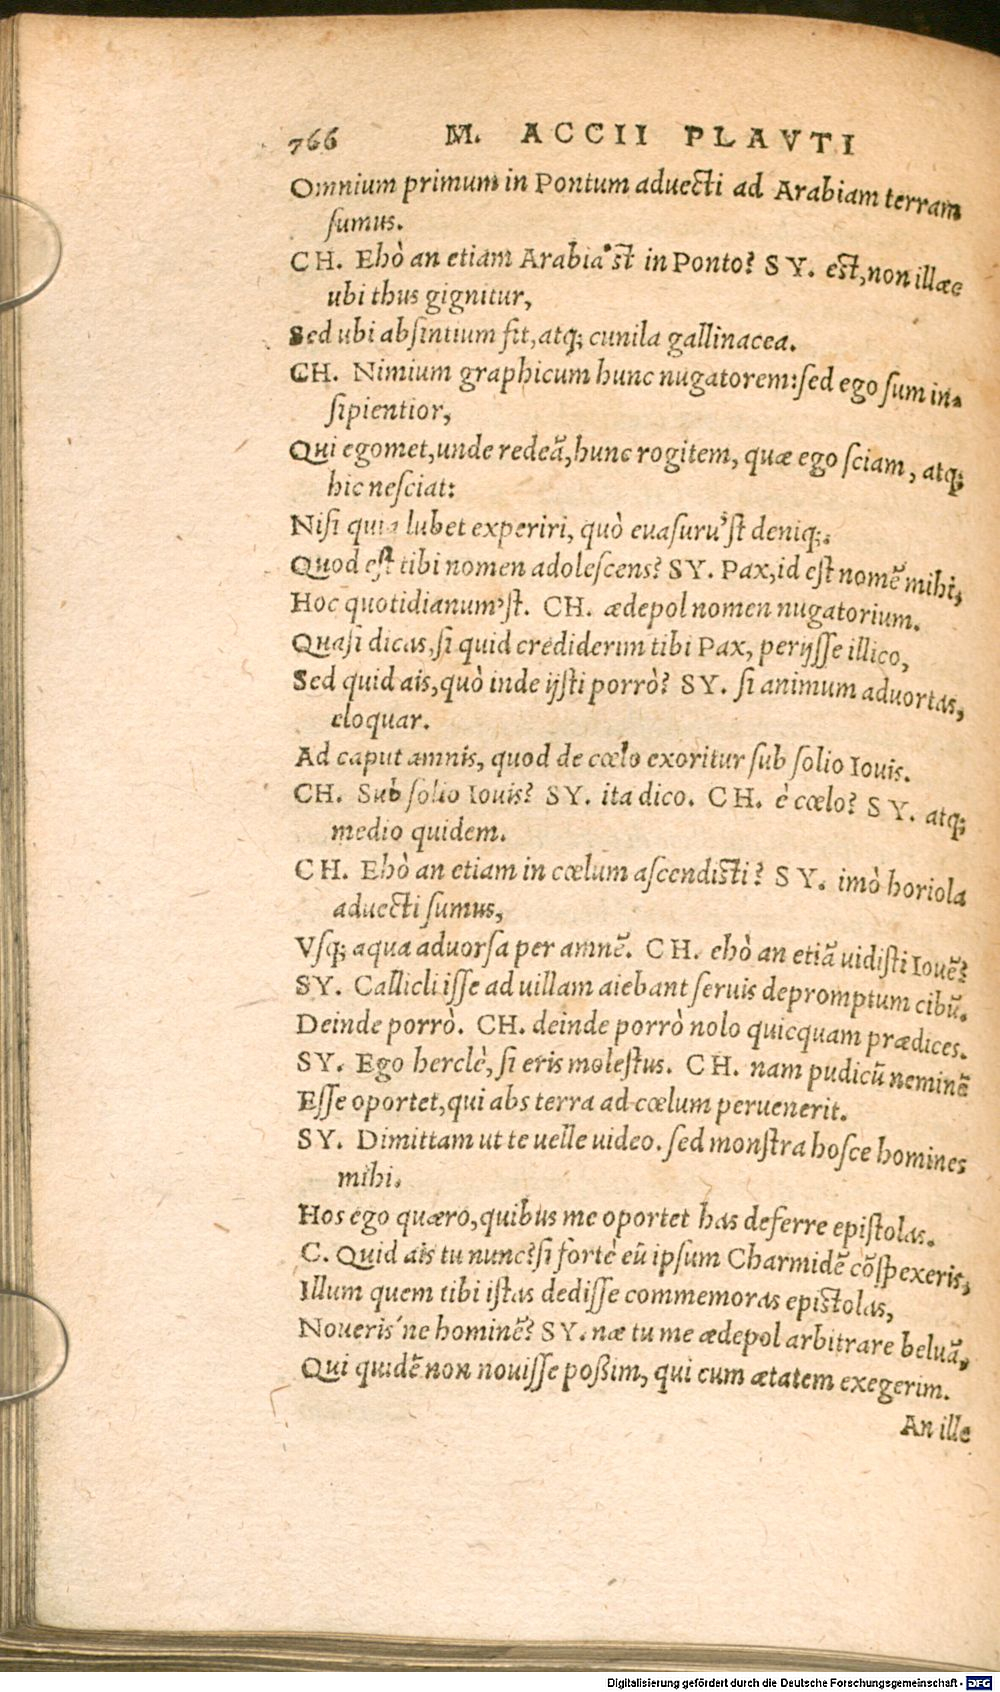 766 M. ACCII PLAVTI
Omnium primum in Pontum aduecti ad Arabiam terram
sumus.
CH. Ehò an etiam Arabia'st in Ponto? SY. est, non illæc
ubi thus gignitur,
Sed ubi absintium fit, atq; cunila gallinacea.
CH. Nimium graphicum hunc nugatorem: sed ego sum in-
sipientior,
Qui egomet, unde redeã, hunc rogitem, quæ ego sciam, atq;
hic nesciat:
Nisi quia lubet experiri, quò euasuru'st deniq;.
Quod est tibi nomen adolescens? SY. Pax, id est nomẽ mihi,
Hoc quotidianum'st. CH. ædepol nomen nugatorium.
Quasi dicas, si quid crediderim tibi Pax, perijsse illico,
Sed quid ais, quò inde ijsti porrò? SY. si animum aduortas,
eloquar.
Ad caput amnis, quod de cœlo exoritur sub solio Iouis.
CH. Sub solio Iouis? SY. ita dico. CH. è cœlo? SY. atq;
medio quidem.
CH. Ehò an etiam in cœlum ascendisti? SY. imò horiola
aduecti sumus,
Vsq; aqua aduorsa per amnẽ. CH. ehò an etiã uidisti Iouẽ?
SY. Callicli isse ad uillam aiebant seruis depromptum cibũ.
Deinde porrò. CH. deinde porrò nolo quicquam prædices.
SY. Ego herclè, si eris molestus. CH. nam pudicũ neminẽ
Esse oportet, qui abs terra ad cœlum peruenerit.
SY. Dimittam ut te uelle uideo. sed monstra hosce homines
mihi,
Hos ego quæro, quibus me oportet has deferre epistolas.
C. Quid ais tu nunc? si fortè eũ ipsum Charmidẽ cõspexeris,
Illum quem tibi istas dedisse commemoras epistolas,
Noueris'ne hominẽ? SY. næ tu me ædepol arbitrare beluã,
Qui quidẽ non nouisse poßim, qui cum ætatem exegerim.
An ille
Digitalisierung gefördert durch die Deutsche Forschungsgemeinschaft - DFG